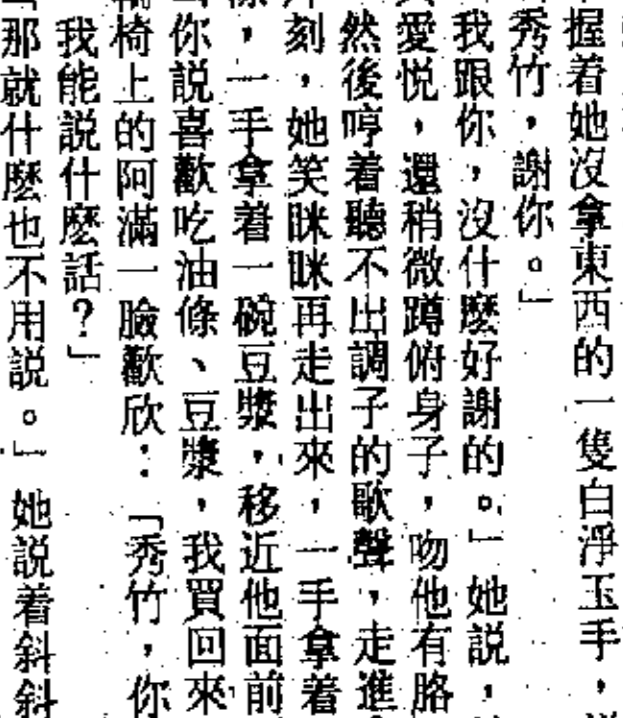 握着她沒拿東西的一隻白淨玉手，
秀竹，謝你。」
我跟你，沒什麽好謝的。」她説，
愛悦，還稍微蹲俯身子，吻他有胳
然後哼着聽不出調子的歌聲，走進
刻，她笑眯眯再走出來，一手拿着
，一手拿着一碗豆漿，移近他面前
「你説喜歡吃油條、豆漿，我買回來
椅上的阿滿一臉歡欣：「秀竹，你
我能説什麽話？」
「那就什麽也不用説。」她説着斜斜